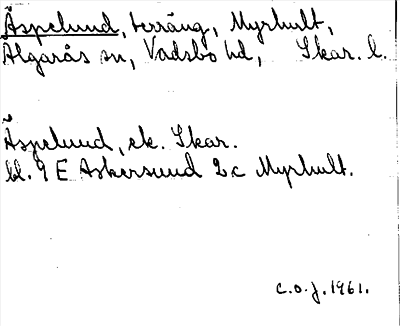 Äspelund, terräng, Myrhult,
Älgarås sn, Vadsbo hd, Skar. l.
Äspelund, ek. Skar.
bl. 9 E Askersund 2 c Myrhult.
C.O.J. 1961.